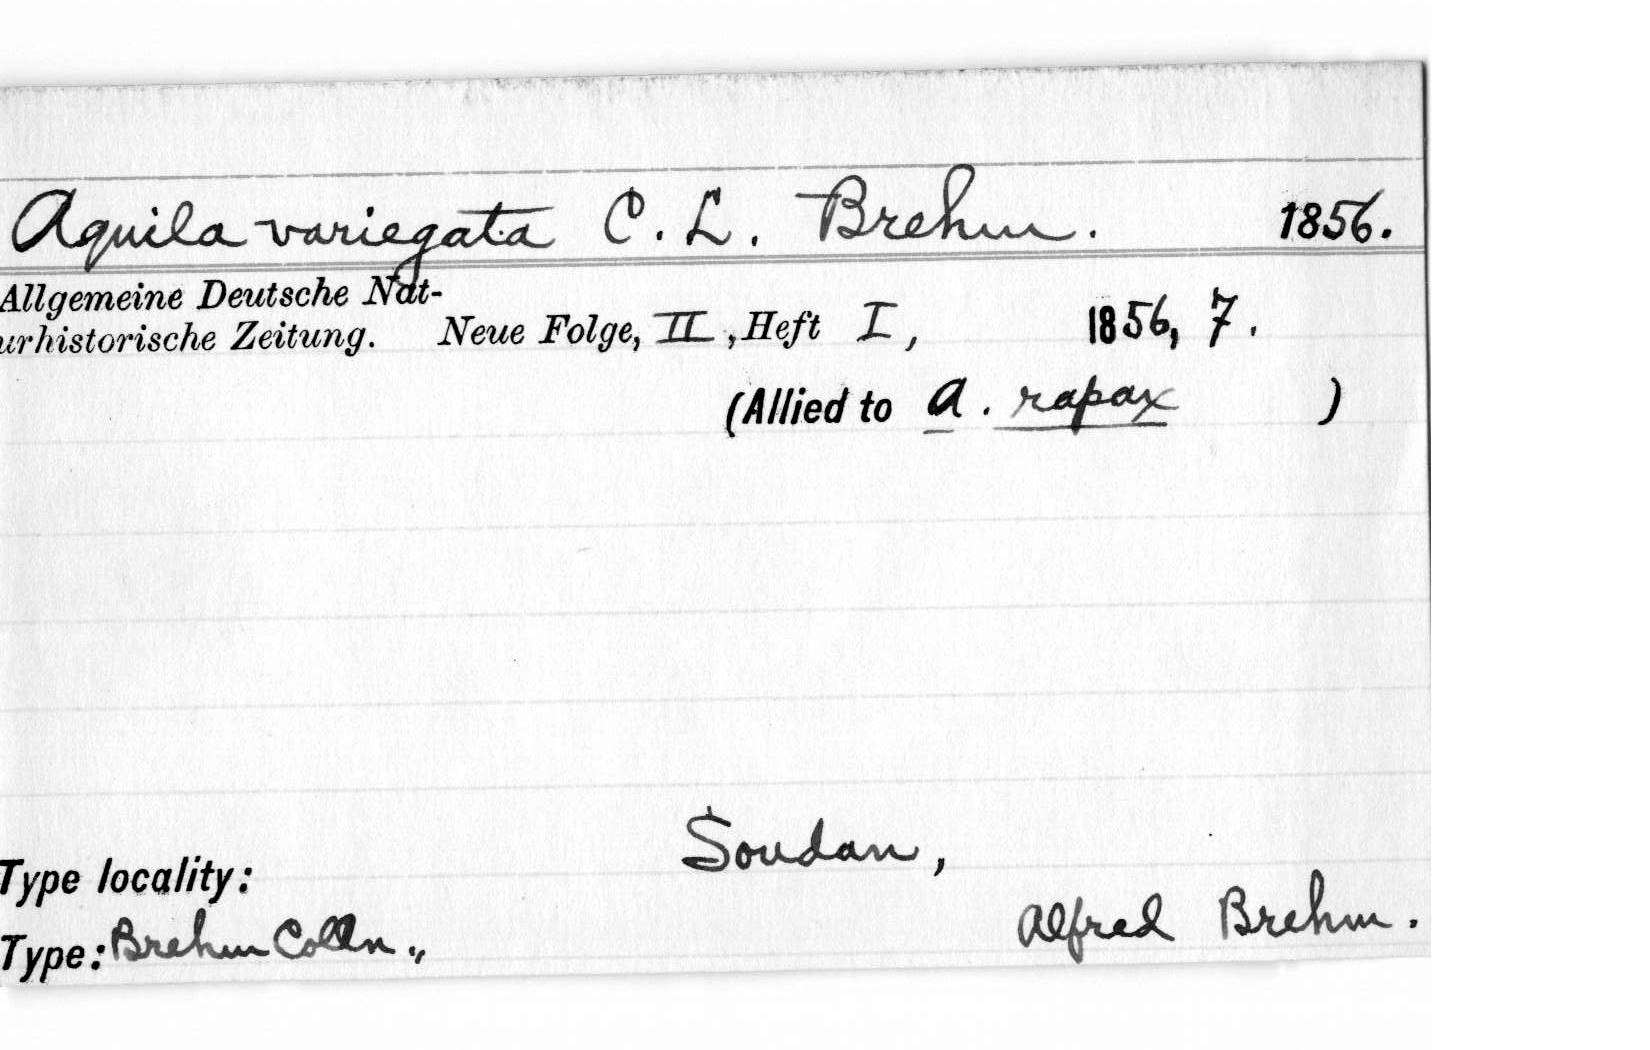 Aquila variegata C. L. Brehm. 1856.
Allgemeine Deutsche Nat-
urhistorische Zeitung. Neue Folge, II, Heft I, 1856, 7.
(Allied to A. rapax )
Soudan,
Type locality:
Alfred Brehm.
Type: Brehm Colln.,